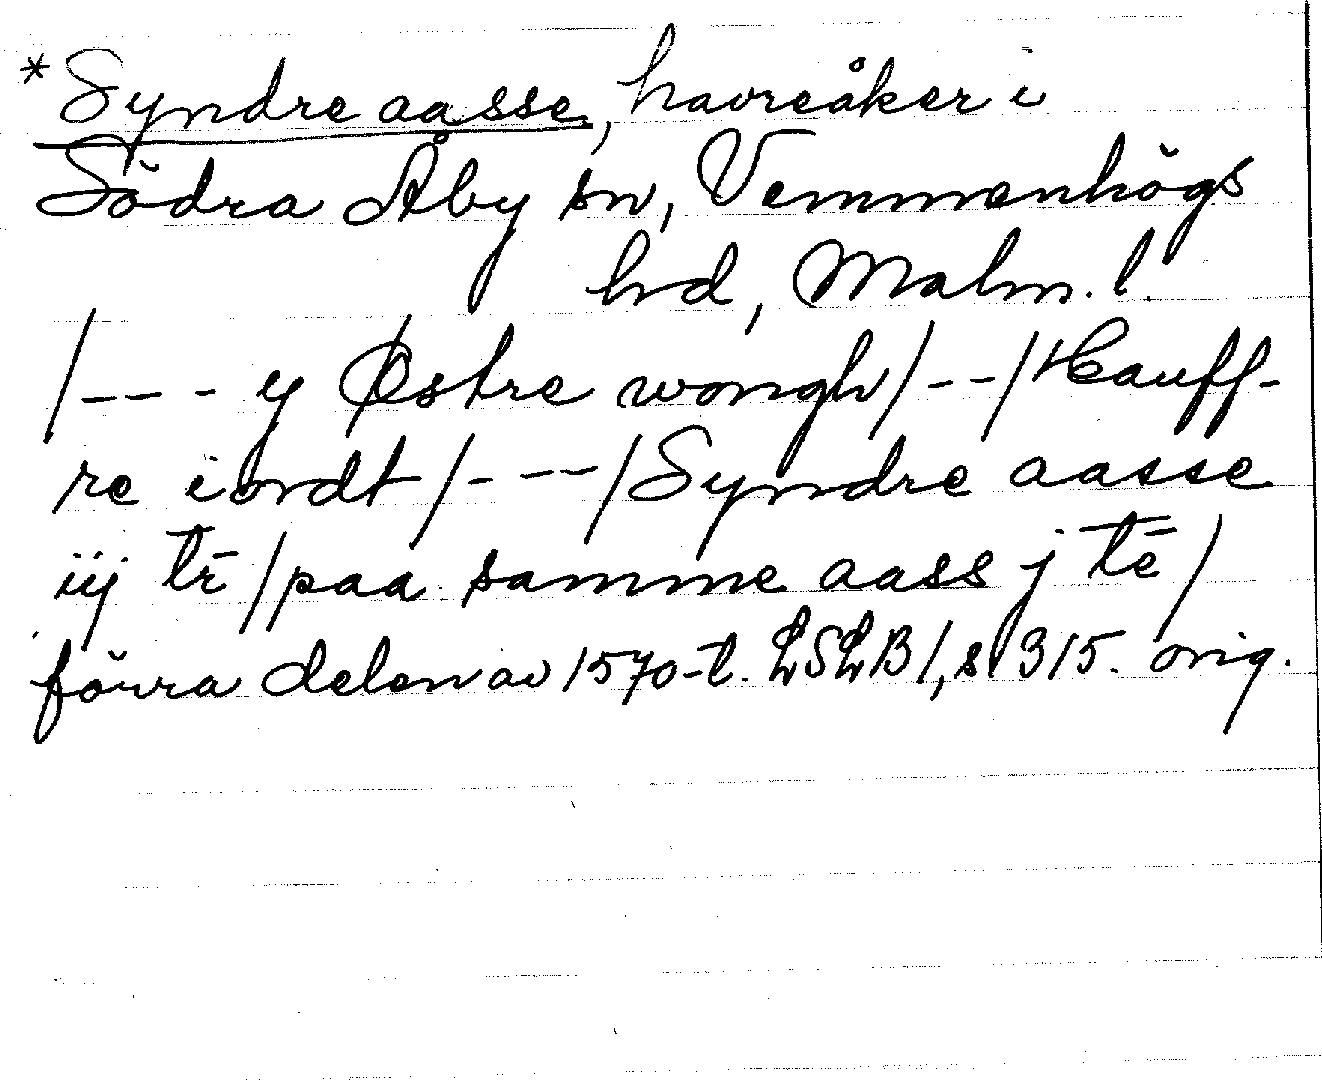 *Syndre aasse, havreåker i
Södra Åby sn, Vemmenhögs
hd, Malm. l.
/--- y Østre wongh/--/Hauff-
re iordt/---/Syndre aasse
iij tē/paa samme aass j tē/
förra delen av 1570-t. LSLB 1, s 315. orig.